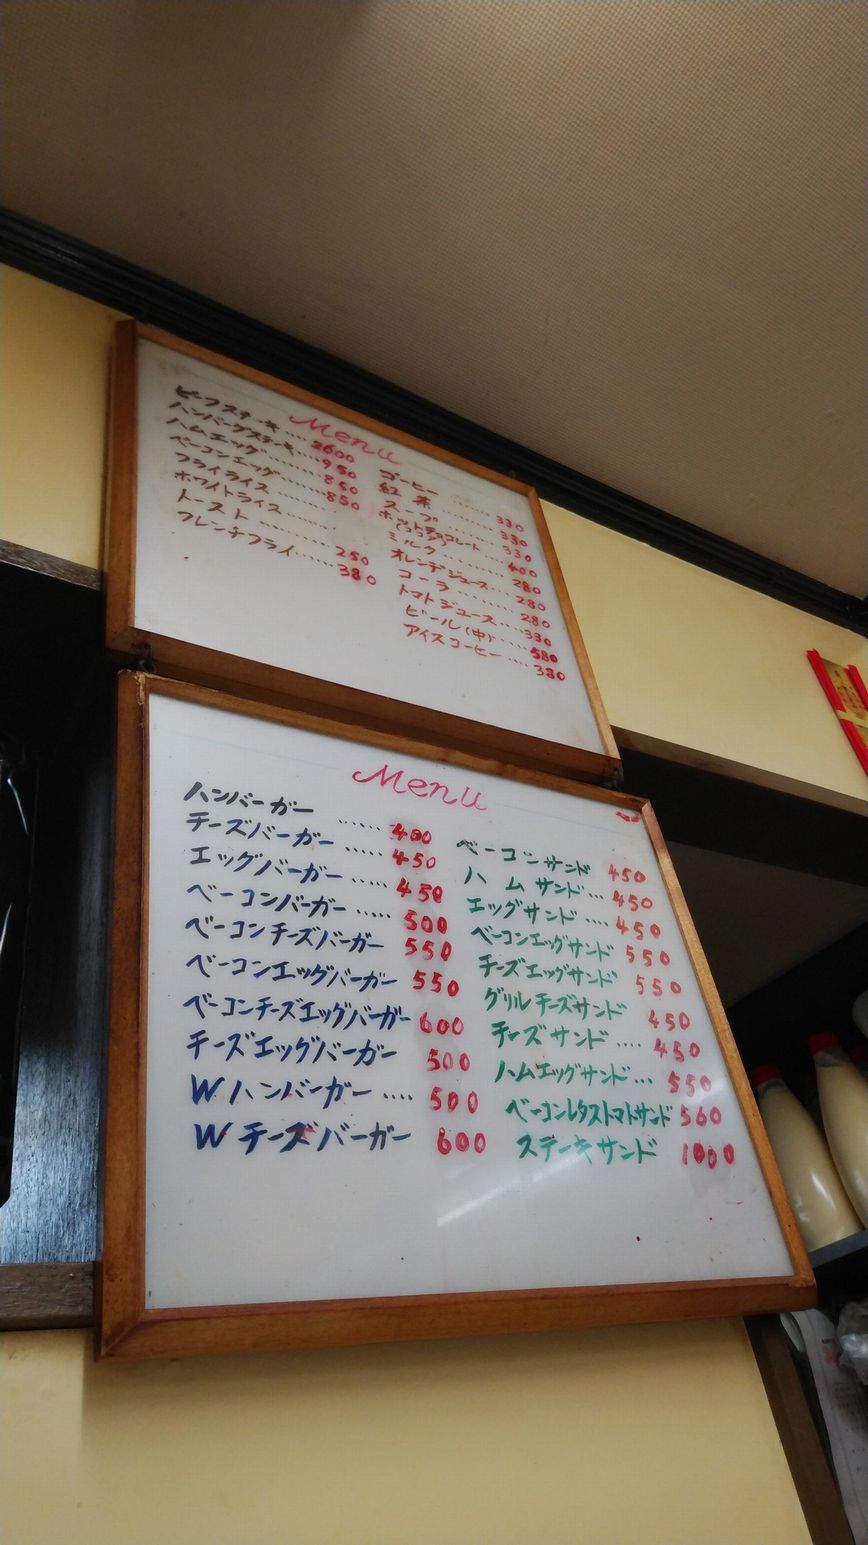 Menu
ビーフステーキ.... 2600
ハンバーグステーキ..... 950
ハムエッグ........ 850
ベーコンエッグ....... 850
フライライス
ホワイトライス
トースト ........ 250
フレンチフライ...... 380
コーヒー ....... 330
紅茶 ........ 330
スープ ........ 330
ホットチョコレート
(ココア) 400
ミルク ........ 280
オレンヂジュース... 280
コーラ ........ 280
トマトジュース.... 330
ビール(中) .... 580
アイスコーヒー .... 380
Menu
ハンバーガー ...... 400
チーズバーガー ..... 450
エッグバーガー ..... 450
ベーコンバーガー ..... 500
ベーコンチーズバーガー 550
ベーコンエッグバーガー 550
ベーコンチーズエッグバーガー 600
チーズエッグバーガー 500
Wハンバーガー .... 500
Wチーズバーガー 600
ベーコンサンド 450
ハムサンド... 450
エッグサンド .... 450
ベーコンエッグサンド 550
チーズエッグサンド 550
グリルチーズサンド 450
チーズサンド .... 450
ハムエッグサンド... 550
ベーコンレタストマトサンド 560
ステーキサンド 1000